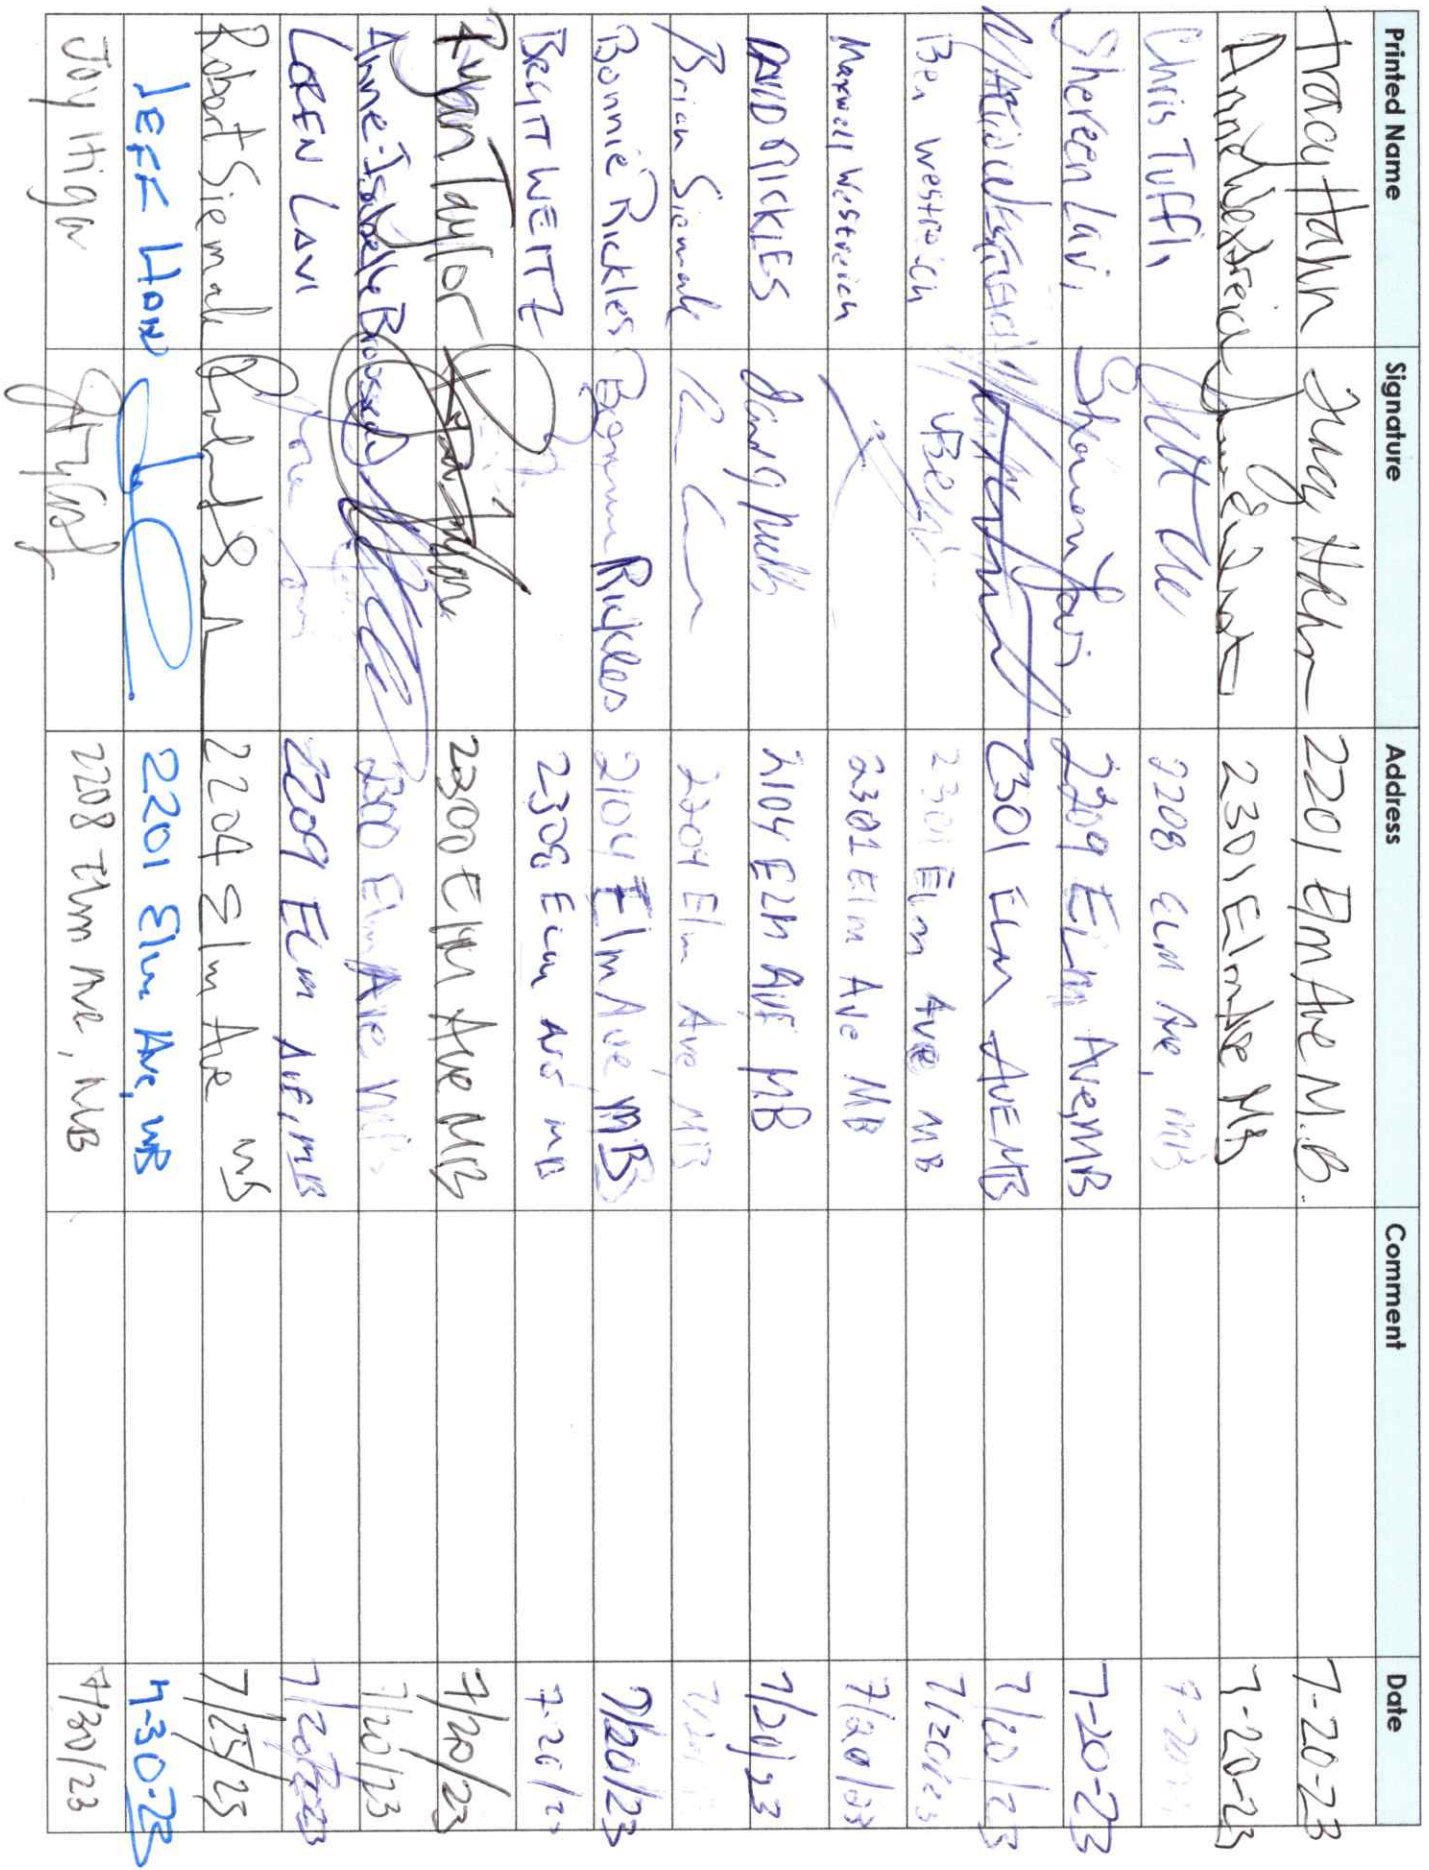 Printed Name Signature Address Comment Date
Tracy Hahn Tracy Hahn 2201 Elm Ave M.B. 7-20-23
Anne Westreich 2301 Elm Ave MB 7-20-23
Chris Tuffli 2208 Elm Ave, MB 7-20
Shereen Lavi Shereen Lavi 2209 Elm Ave, MB 7-20-23
2301 Elm AVE MB 7/20/23
Ben Westreich Ben 2301 Elm Ave MB 7/20/23
Maxwell Westreich 2301 Elm Ave MB 7/20/23
DAVID RICKLES 2104 ELM AVE MB 7/20/23
Brian Siemak 2204 Elm Ave, MB
Bonnie Rickles Bonnie Rickles 2104 Elm Ave, MB 7/20/23
BRITT WEITZ 2308 Elm AVE MB 7-20/
Ryan Taylor 2300 Elm Ave MB 7/20/23
Anne-Isabelle 2300 Elm Ave 7/20/23
LOREN LAVI 2209 ELM AVE, MB
Robert Siemak 2204 Elm Ave MB 7/25/23
JEFF HON 2201 Elm Ave, MB 7-30-23
Joy Higa 2208 Elm Ave, MB 7/30/23